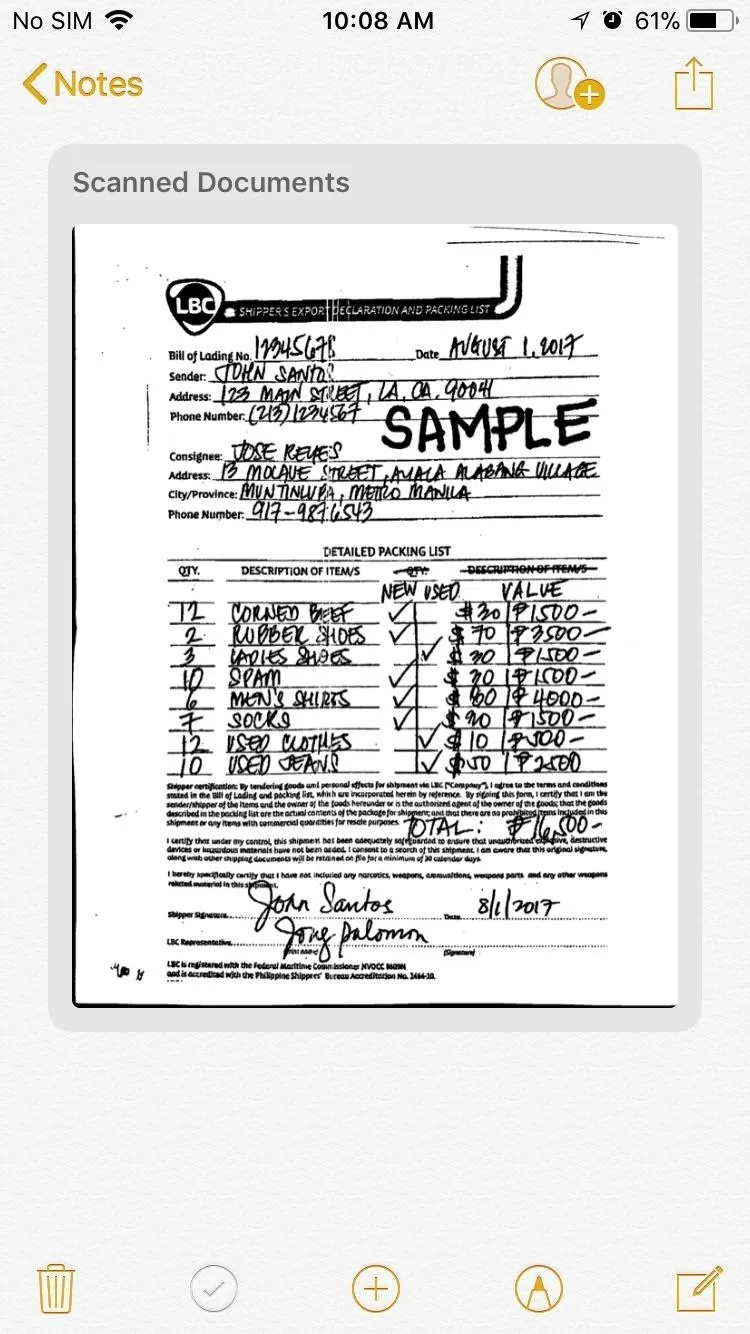 No SIM 10:08 AM 61%
Notes
Scanned Documents
LBC SHIPPER'S EXPORT DECLARATION AND PACKING LIST
Bill of Lading No. 12345678 Date AUGUST 1, 2017
Sender: JOHN SANTOS
Address: 123 MAIN STREET, LA, CA. 90041
Phone Number: (213) 1234567
SAMPLE
Consignee: JOSE REYES
Address: 13 MOLAVE STREET, AYALA ALABANG VILLAGE
City/Province: MUNTINLUPA, METRO MANILA
Phone Number: 917-9876543
DETAILED PACKING LIST
QTY. DESCRIPTION OF ITEM/S QTY. DESCRIPTION OF ITEM/S
NEW USED VALUE
12 CORNED BEEF ✓ $30 ₱1500-
2 RUBBER SHOES ✓ $70 ₱3500-
3 LADIES SHOES ✓ $30 ₱1500-
10 SPAM ✓ $30 ₱1500-
6 MEN'S SHIRTS ✓ $80 ₱4000-
7 SOCKS ✓ $30 ₱1500-
12 USED CLOTHES ✓ $10 ₱500-
10 USED JEANS ✓ $50 ₱2500
Shipper certification: By tendering goods and personal effects for shipment via LBC ("Company"), I agree to the terms and conditions
stated in the Bill of Lading and packing list, which are incorporated herein by reference. By signing this form, I certify that I am the
sender/shipper of the items and the owner of the foods hereunder or is the authorized agent of the owner of the goods; that the goods
described in the packing list are the actual contents of the package for shipment; and that there are no prohibited items included in this
shipment or any items with commercial quantities for resale purposes.
TOTAL: ₱16,500-
I certify that under my control, this shipment has been adequately safeguarded to ensure that unauthorized explosive, destructive
devices or hazardous materials have not been added. I consent to a search of this shipment. I am aware that this original signature,
along with other shipping documents will be retained on file for a minimum of 30 calendar days.
I hereby specifically certify that I have not included any narcotics, weapons, ammunitions, weapons parts and any other weapons
related material in this shipment.
John Santos
Shipper Signature Date 8/1/2017
Jong Palomon
LBC Representative (Print name) (Signature)
LBC is registered with the Federal Maritime Commissioner NVOCC 8609N
and is accredited with the Philippine Shippers' Bureau Accreditation No.